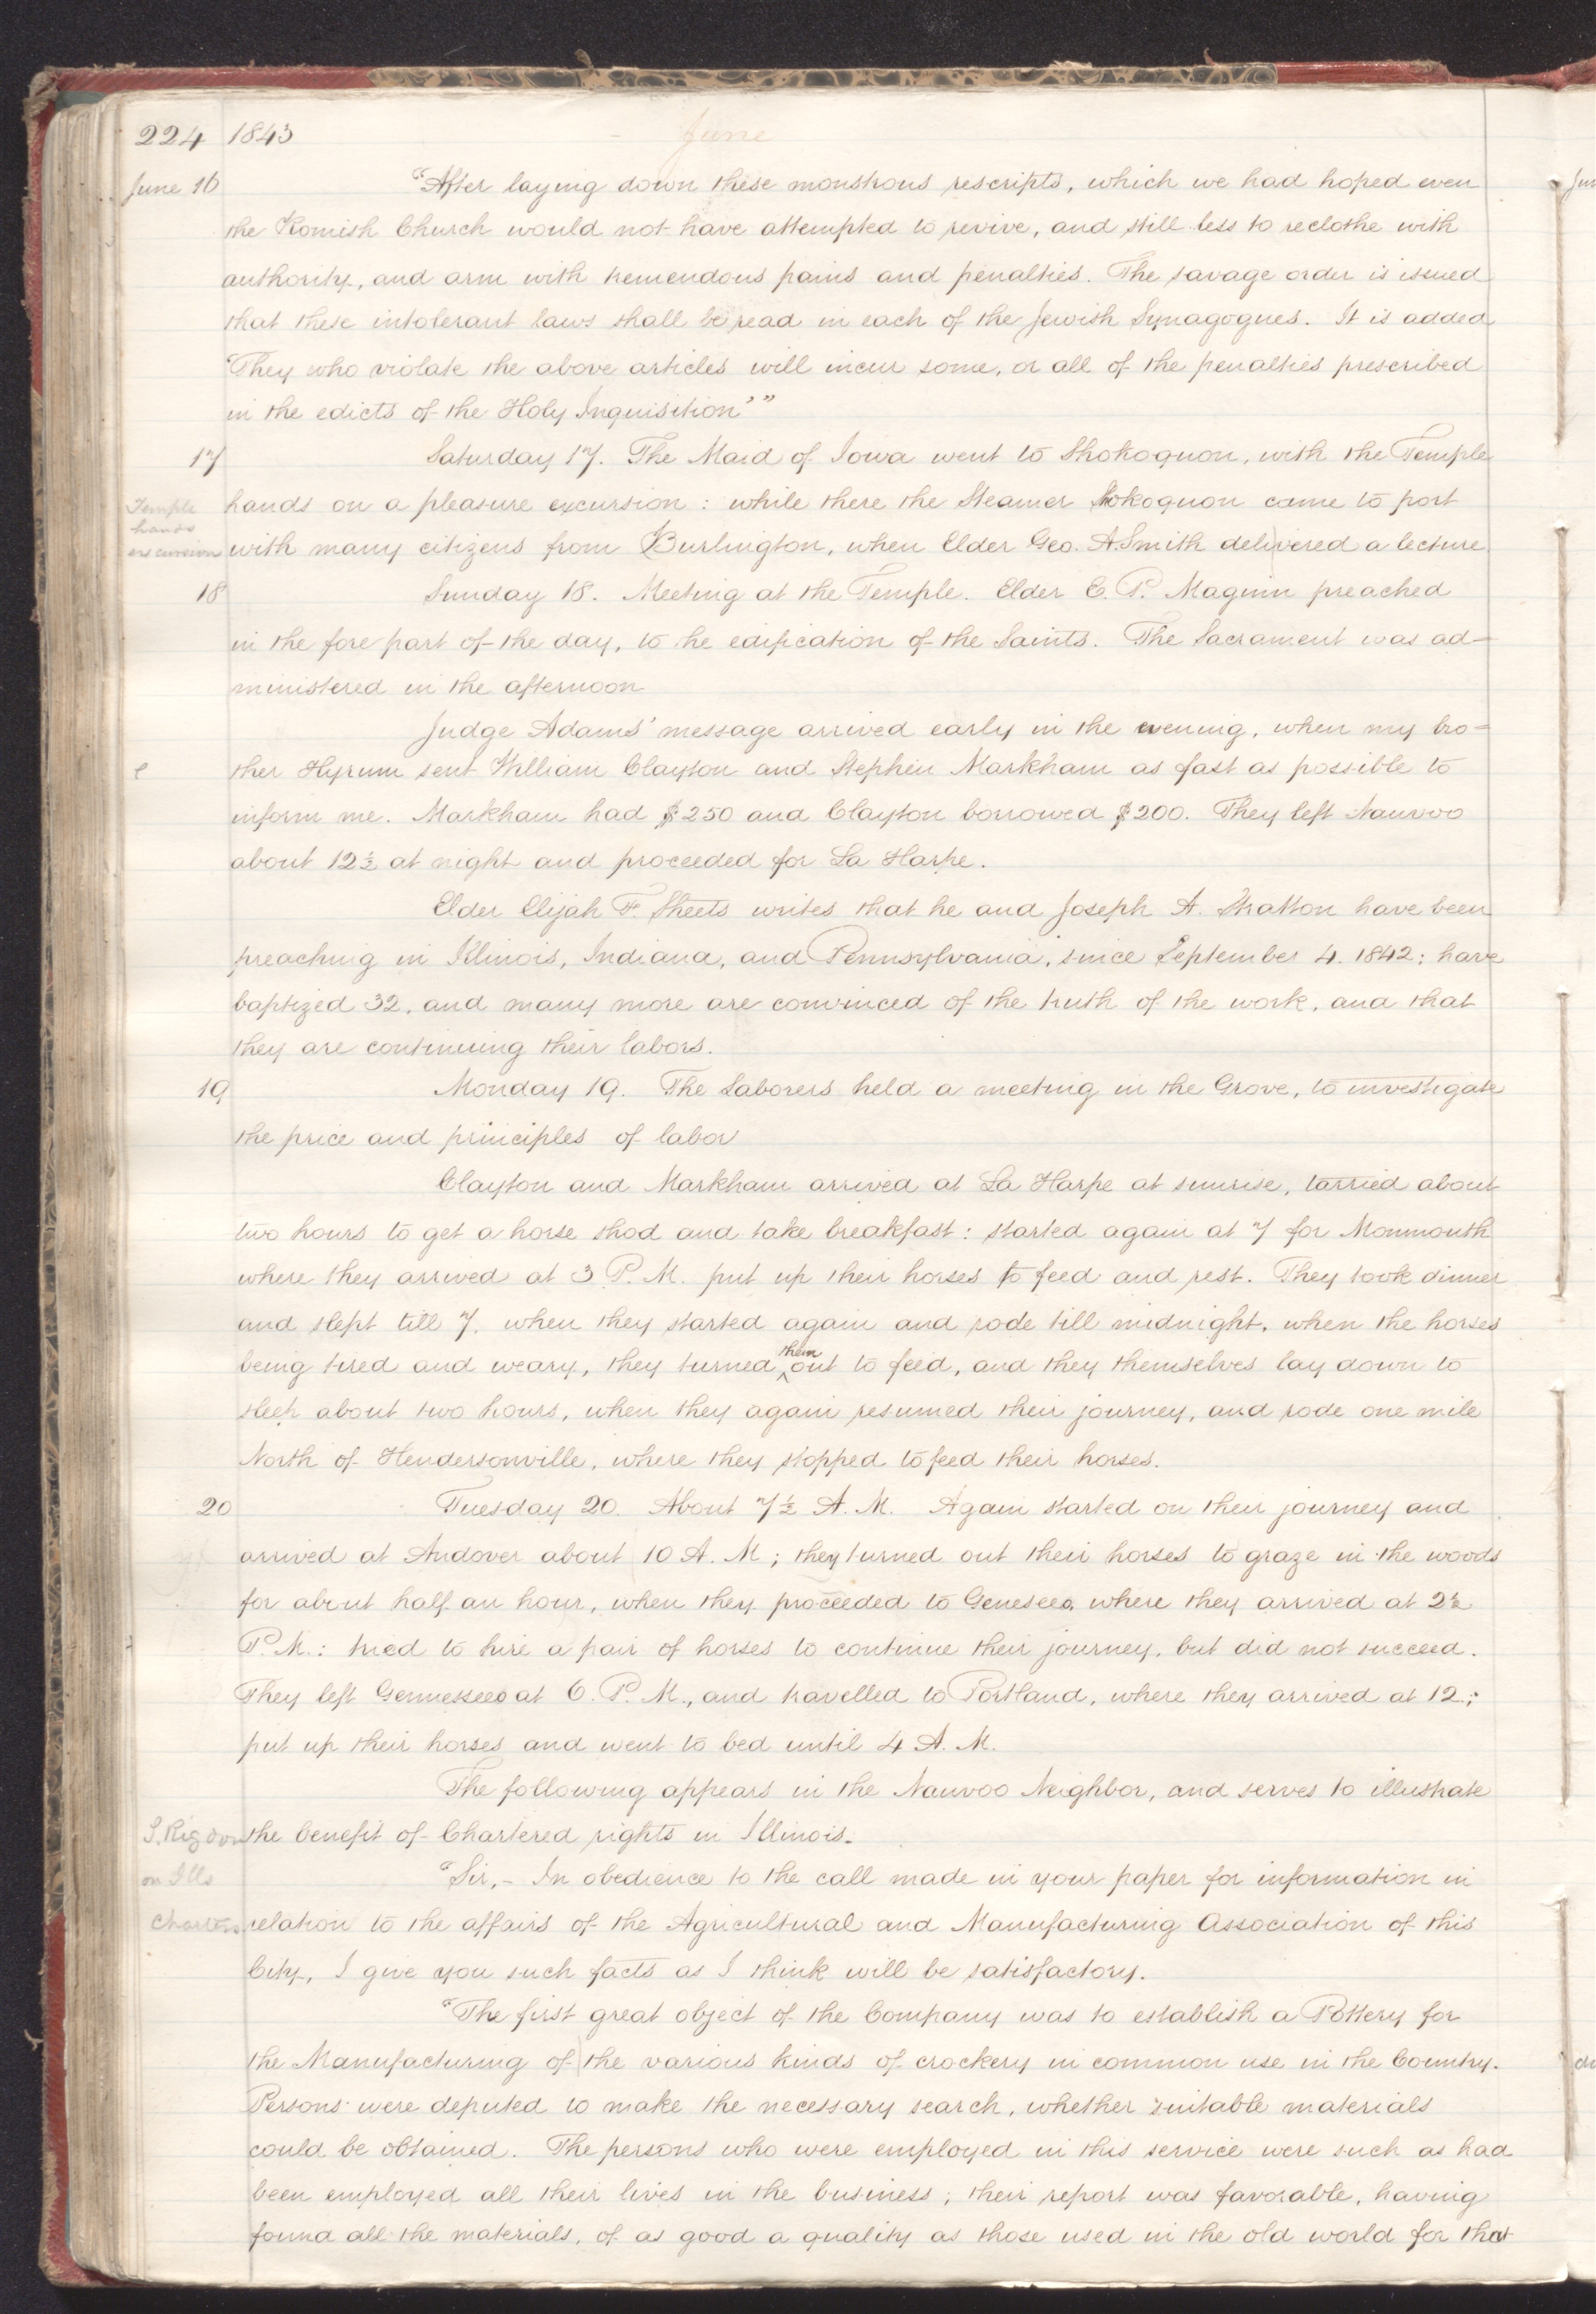 224 1843 June
June 16 "After laying down these monstrous rescripts, which we had hoped even
the Romish Church would not have attempted to revive, and still less to reclothe with
authority, and arm with tremendous pains and penalties. The savage order is issued
that these intolerant laws shall be read in each of the Jewish Synagogues. It is added
'They who violate the above articles will incur some, or all of the penalties prescribed
in the edicts of the Holy Inquisition'"
17 Saturday 17. The Maid of Iowa went to Shokoquon, with the Temple
Temple hands excursion
hands on a pleasure excursion: while there the Steamer Shokoquon came to port
with many citizens from Burlington, when Elder Geo. A. Smith delivered a lecture.
18 Sunday 18. Meeting at the Temple. Elder E. P. Maginn preached
in the fore part of the day, to he edification of the Saints. The Sacrament was ad-
ministered in the afternoon
Judge Adams' message arrived early in the evening, when my bro=
e ther Hyrum sent William Clayton and Stephen Markham as fast as possible to
inform me. Markham had $250 and Clayton borrowed $200. They left Nauvoo
about 12½ at night and proceeded for La Harpe.
Elder Elijah F. Sheets writes that he and Joseph A. Stratton have been
preaching in Illinois, Indiana, and Pennsylvania, since September 4. 1842; have
baptized 32, and many more are convinced of the truth of the work, and that
they are continuing their labors.
19 Monday 19. The Laborers held a meeting in the Grove, to investigate
the price and principles of labor
Clayton and Markham arrived at La Harpe at sunrise, tarried about
two hours to get a horse shod and take breakfast: started again at 7 for Monmouth
where they arrived at 3 P. M. put up their horses to feed and rest. They took dinner
and slept till 7, when they started again and rode till midnight, when the horses
being tired and weary, they turned ^them out to feed, and they themselves lay down to
sleep about two hours, when they again resumed their journey, and rode one mile
North of Hendersonville, where they stopped to feed their horses.
20 Tuesday 20. About 7½ A. M. Again started on their journey and
arrived at Andover about 10 A. M; they turned out their horses to graze in the woods
for about half an hour, when they proceeded to Geneseeo, where they arrived at 2½
P. M.: tried to hire a pair of horses to continue their journey, but did not succeed.
They left Gennesseeo at 6. P. M., and travelled to Portland, where they arrived at 12;
put up their horses and went to bed until 4 A. M.
The following appears in the Nauvoo Neighbor, and serves to illustrate
S. Rigdon on Ills Charters
the benefit of Chartered rights in Illinois.
"Sir,- In obedience to the call made in your paper for information in
relation to the affairs of the Agricultural and Manufacturing Association of this
City, I give you such facts as I think will be satisfactory.
"The first great object of the Company was to establish a Pottery for
the Manufacturing of the various kinds of crockery in common use in the Country.
Persons were deputed to make the necessary search, whether suitable materials
could be obtained. The persons who were employed in this service were such as had
been employed all their lives in the business; their report was favorable, having
found all the materials, of as good a quality as those used in the old world for that